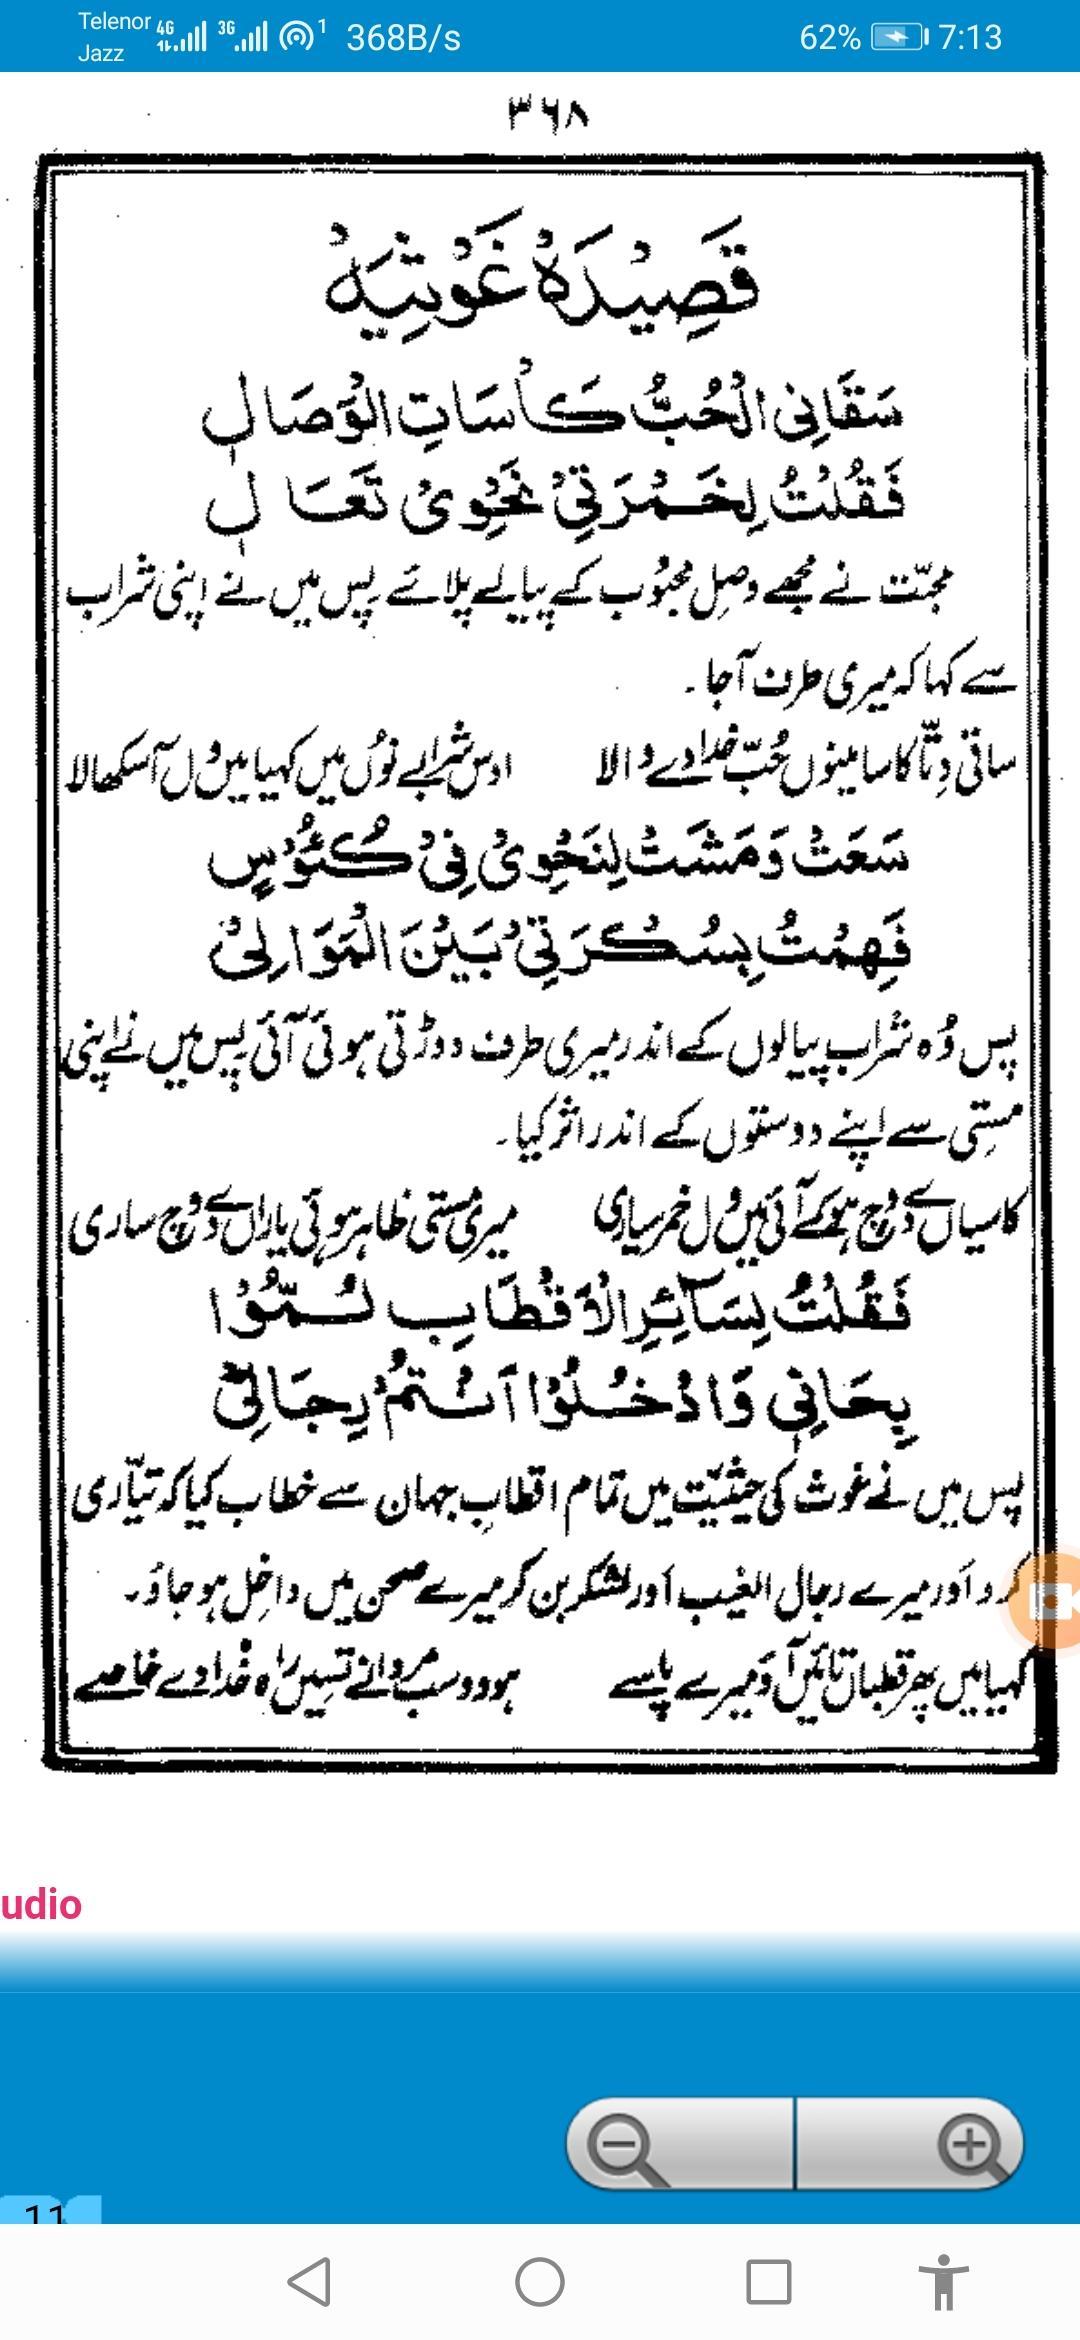 Telenor 4G 3G 1 368B/s 62% 7:13
Jazz
۳۶۸
قَصِيْدَهْ غَوْثِيَهْ
سَقَانِی الْحُبُّ كَاْسَاتِ الْوَصَالِ
فَقُلْتُ لِخَمْرَتِیْ نَحْوِیْ تَعَالِ
محبّت نے مجھے وصلِ محبُوب کے پیالے پلائے پس میں نے اپنی شراب
سے کہا کہ میری طرف آجا۔
ساقی دِتّا کاسا مینوں حُبّ خدا دے والا اوس شرابے نوں میں کہیا میں وَل آ سکھالا
سَعَتْ وَمَشَتْ لِنَحْوِیْ فِیْ كُئُوْسٍ
فَهِمْتُ بِسُكْرَتِیْ بَيْنَ الْمَوَالِیْ
پس وُہ شراب پیالوں کے اندر میری طرف دوڑتی ہوئی آئی پس میں نے اپنی
مستِی سے اپنے دوستوں کے اندر اثر کیا۔
کاسیاں دے وِچ ہو کے آئی میں وَل خمر پیاری میری مستی ظاہر ہوئی یاراں دے وِچ ساری
فَقُلْتُ لِسَآئِرِ الْاَقْطَابِ لُمُّوْا
بِحَانِیْ وَادْخُلُوْا اَنْتُمْ رِجَالِیْ
پس میں نے غوث کی حیثیّت میں تمام اقطابِ جہان سے خطاب کیا کہ تیّاری
کرو اَور میرے رجال الغیب اَور لشکر بن کر میرے صحن میں داخِل ہو جاؤ۔
کہیا میں پھر قطباں تائیں آؤ میرے پاسے ہووو سب مردانے تسیں راہ خُدا دے خاصے
udio
11